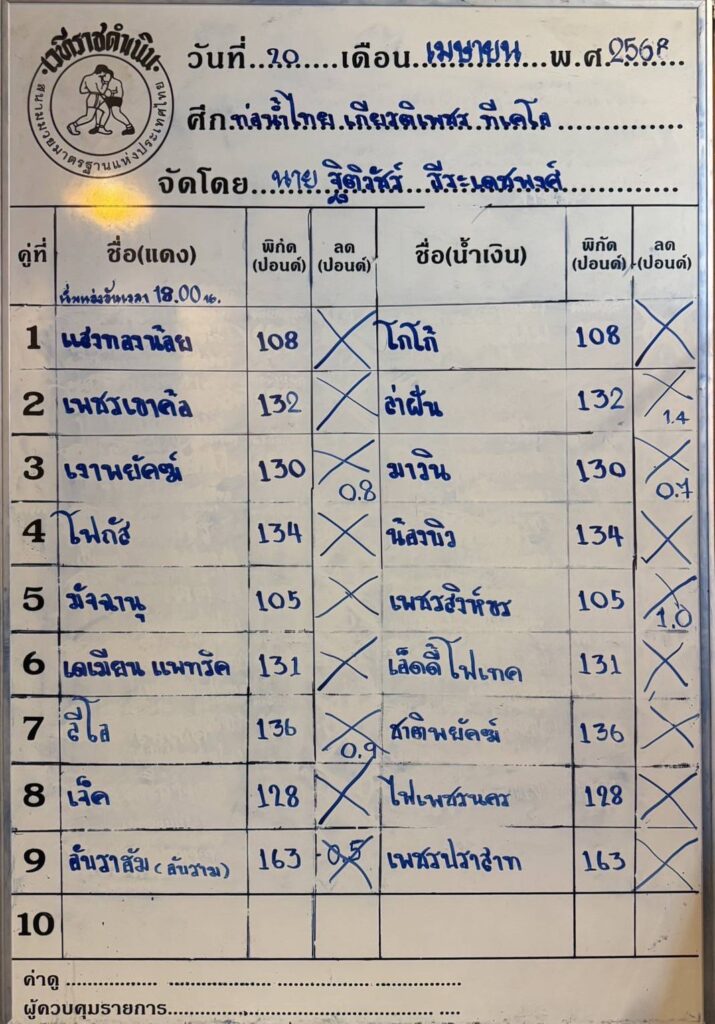 เวทีราชดำเนิน
สนามมวยมาตรฐานแห่งประเทศไทย
วันที่...20.....เดือน...เมษายน...พ.ศ.2568
ศึก.ท่อน้ำไทย.เกียรติเพชร.ทีเคโอ
จัดโดย...นาย ฐิติวัชร์ ธีระเดชพงศ์
คู่ที่ ชื่อ(แดง) พิกัด (ปอนด์) ลด (ปอนด์) ชื่อ(น้ำเงิน) พิกัด (ปอนด์) ลด (ปอนด์)
18.00 น.
1 แสงทองน้อย 108 โกโก้ 108
2 เพชรเขาค้อ 132 ล่าฝัน 132 1.4
3 เงาพยัคฆ์ 130 0.8 มาวิน 130 0.7
4 โฟกัส 134 น้องบิว 134
5 มัจฉานุ 105 เพชรสิงห์ขร 105 1.0
6 เดเมียน แพทริค 131 เอ็ดดี้ ไฟเทค 131
7 ลีโอ 136 0.9 ชาติพยัคฆ์ 136
8 เจ็ค 128 ไฟเพชรนคร 128
9 163 0.5 เพชรปราสาท 163
10
ค่าดู
ผู้ควบคุมรายการ